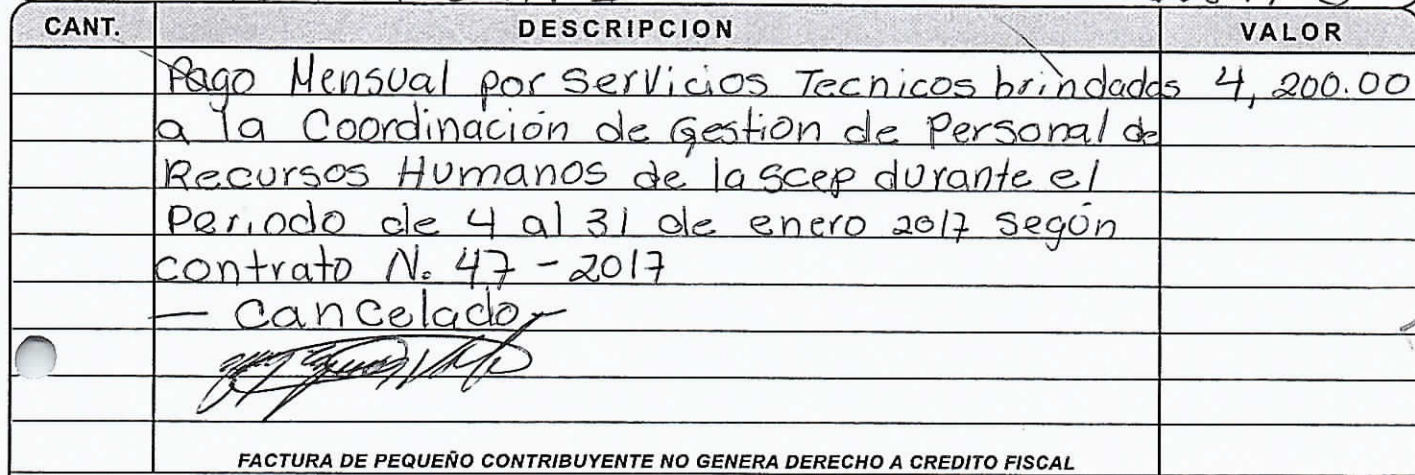 CANT. DESCRIPCION VALOR
Pago Mensual por Servicios Tecnicos brindados 4,200.00
a la Coordinación de Gestion de Personal de
Recursos Humanos de la scep durante el
Periodo de 4 al 31 de enero 2017 Según
contrato No. 47 - 2017
- Cancelado -
FACTURA DE PEQUEÑO CONTRIBUYENTE NO GENERA DERECHO A CREDITO FISCAL